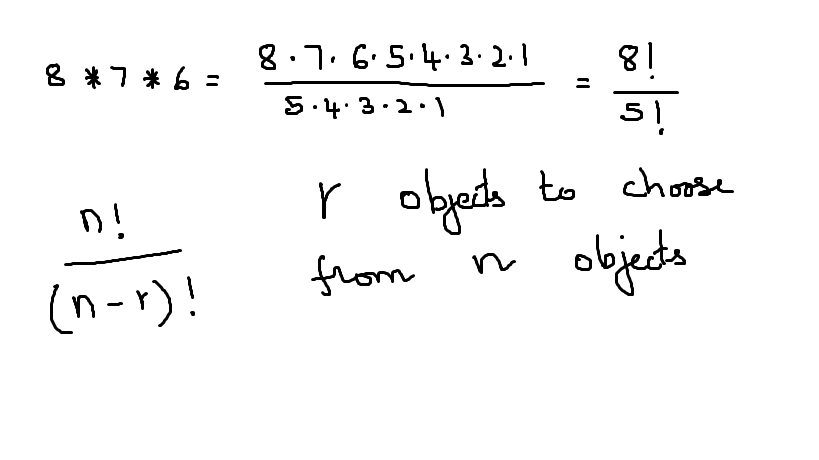 8 * 7 * 6 = 8 · 7 · 6 · 5 · 4 · 3 · 2 · 1 / 5 · 4 · 3 · 2 · 1 = 8! / 5!
n! / (n - r)!
r objects to choose
from n objects